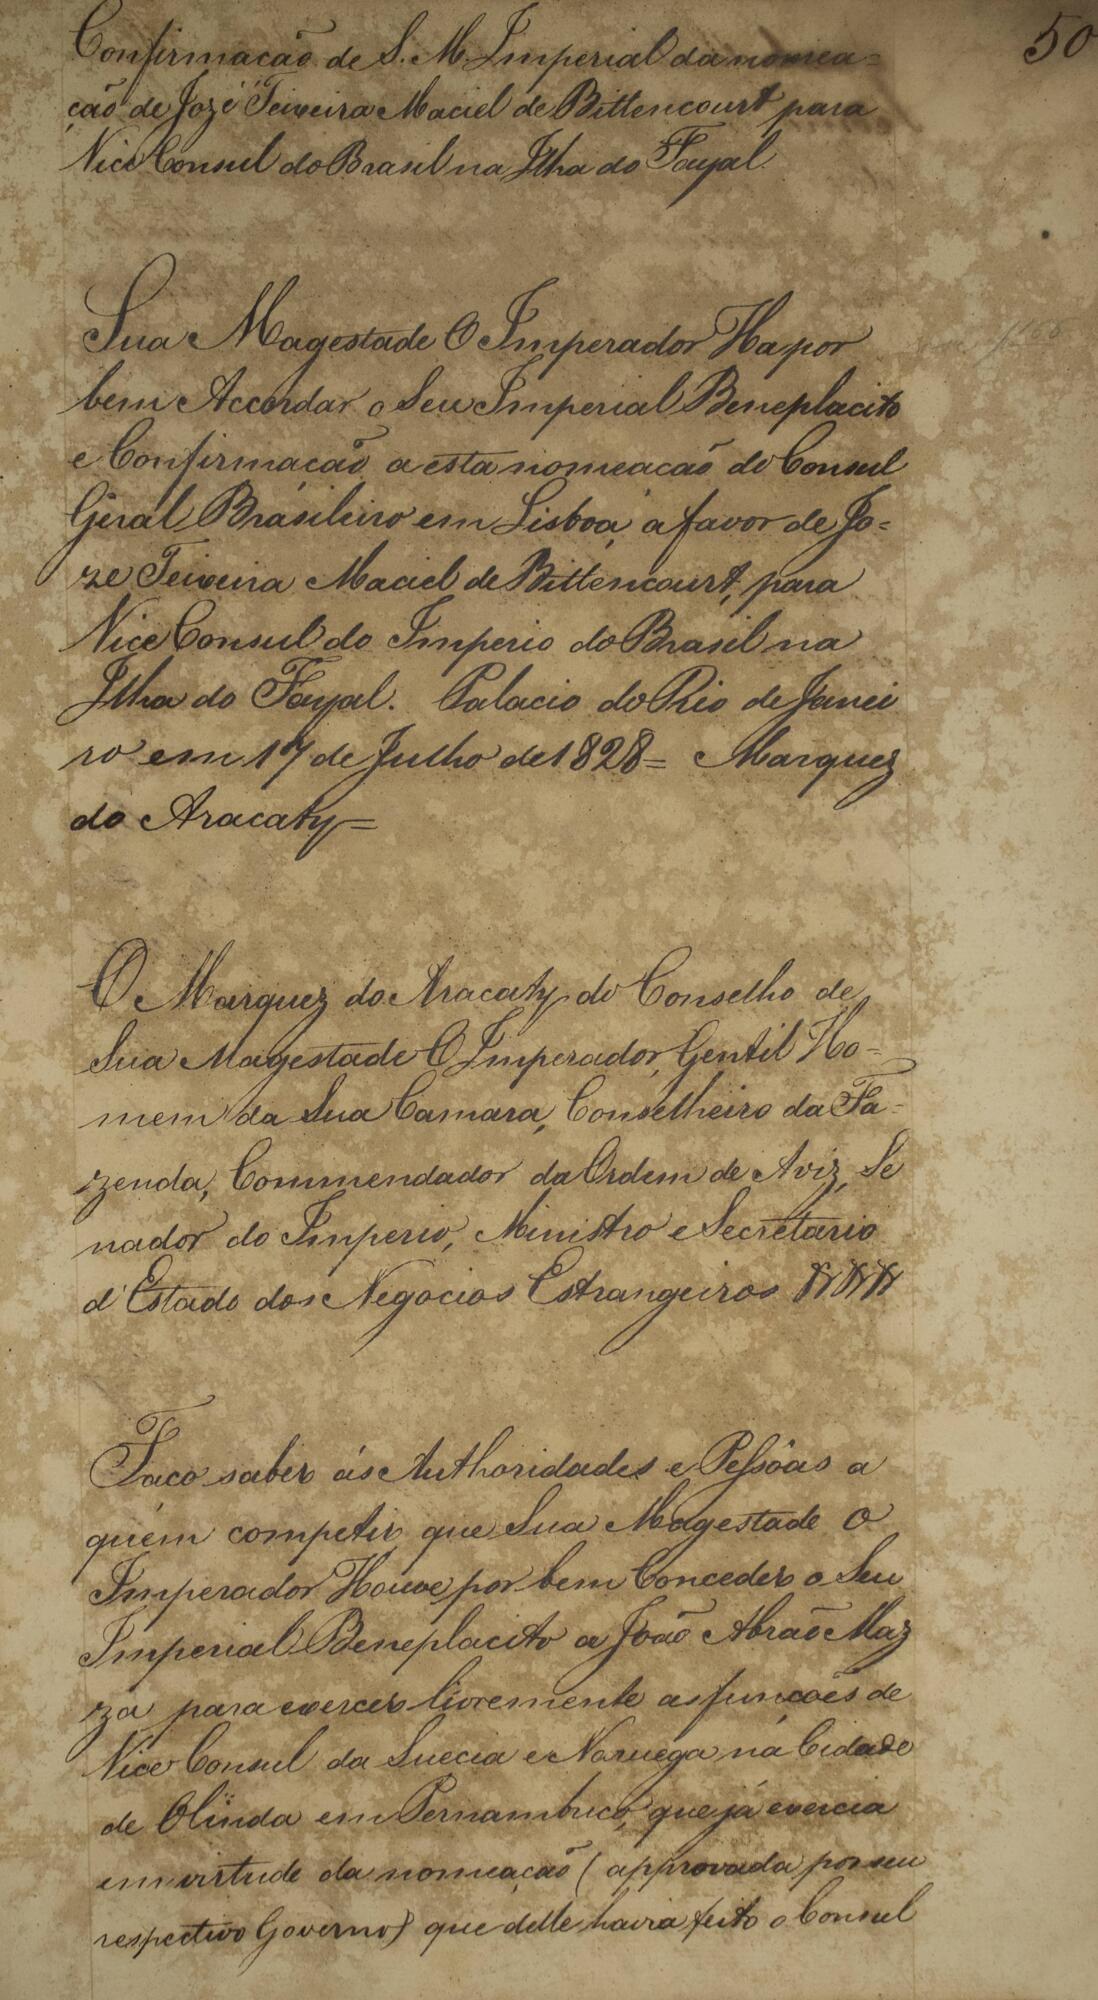 50
Confirmacão de S. M. Imperial da nomea=
ção de Jozé Teixeira Maciel de Bittencourt para
Vice Consul do Brasil na Ilha do Fayal.
Sua Magestade O Imperador Ha por
bem Accordar o Seu Imperial Beneplacito
e Confirmação a esta nomeacão do Consul
Geral Brasileiro em Lisboa, a favor de Jo=
ze Teixeira Maciel de Bittencourt, para
Vice Consul do Imperio do Brasil na
Ilha do Fayal. Palacio do Rio de Janei
ro em 17 de Julho de 1828= Marquez
do Aracaty=
O Marquez do Aracaty, do Conselho de
Sua Magestade O Imperador, Gentil Ho=
mem da Sua Camara, Conselheiro da Fa=
zenda, Commendador da Ordem de Aviz, Se
nador do Imperio, Ministro e Secretario
d'Estado dos Negocios Estrangeiros
Faco saber ás Authoridades e Pessôas a
quem competir que Sua Magestade O
Imperador Houve por bem Conceder o Seu
Imperial Beneplacito a João Abrão Maz
za para exercer livremente as funções de
Vice Consul da Suecia e Noruega na Cidade
de Olinda em Pernambuco, que já exercia
em virtude da nomeação (approvada por seu
respectivo Governo) que delle havia feito o Consul